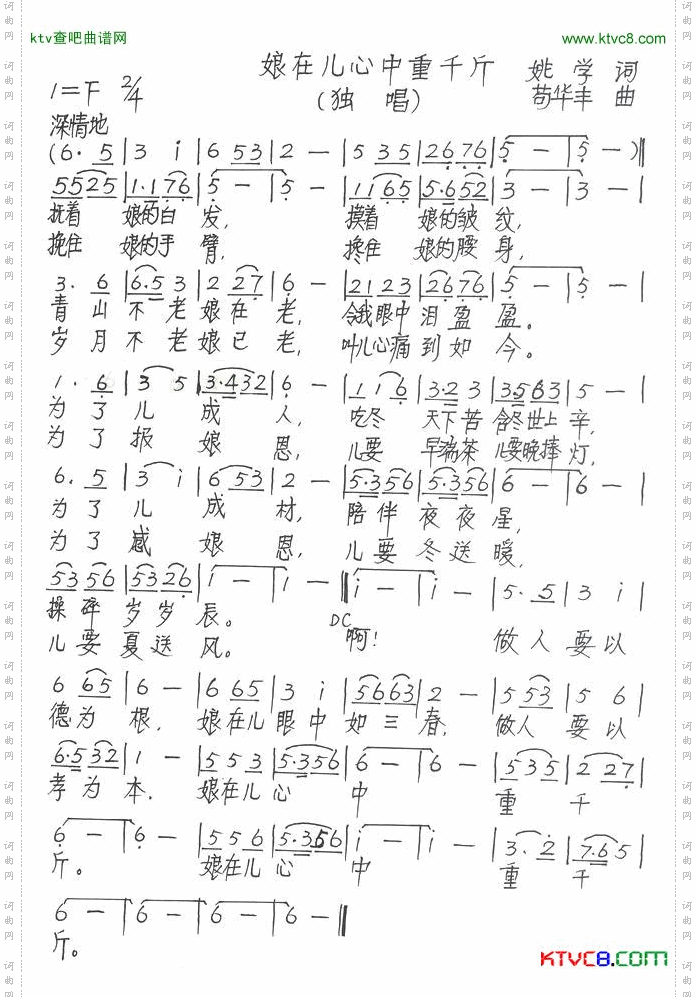 ktv查吧曲谱网
www.ktvc8.com
娘在儿心中重千斤
(独 唱)
姚 学 词
苟华丰 曲
1=F 2/4
深情地
(6. 5 | 3 i | 6 53 | 2 — | 5 35 | 26 76 | 5 — | 5 — )‖
55 25 | 1.1 76 | 5 — | 5 — | 11 65 | 5.6 52 | 3 — | 3 — |
抚着 娘的白 发, 摸着 娘的皱 纹,
挽住 娘的手 臂, 搀住 娘的腰 身,
3. 6 | 6.5 3 | 2 27 | 6 — | 21 23 | 26 76 | 5 — | 5 — |
青 山 不 老 娘 在 老, 令我眼中 泪 盈 盈。
岁 月 不 老 娘 已 老, 叫儿心痛 到 如 今。
1. 6 | 3 5 | 3.4 32 | 6 — | 1 1 6 | 3.2 3 | 35 63 | 5 — |
为 了 儿 成 人, 吃尽 天下苦 含尽世上 辛,
为 了 报 娘 恩, 儿要 早端茶 儿要晚捧 灯,
6. 5 | 3 i | 6 53 | 2 — | 5.3 56 | 5.3 56 | 6 — | 6 — |
为 了 儿 成 材, 陪 伴 夜 夜 星,
为 了 感 娘 恩, 儿 要 冬 送 暖,
53 56 | 53 26 | i — | i — ‖ i — | i — | 5. 5 | 3 i |
操 碎 岁 岁 辰。 DC 啊! 做 人 要 以
儿 要 夏 送 风。
6 65 | 6 — | 6 65 | 3 i | 56 63 | 2 — | 5 53 | 5 6 |
德 为 根, 娘在儿 眼 中 如 三 春, 做人 要 以
6.5 32 | 1 — | 5 5 3 | 5.3 56 | 6 — | 6 — | 5 3 5 | 2 27 |
孝 为 本, 娘在儿 心 中 重 千
6 — | 6 — | 5 5 6 | 5.3 56 | i — | i — | 3. 2 | 7.6 5 |
斤。 娘在儿 心 中 重 千
6 — | 6 — | 6 — | 6 — ‖
斤。
KTVC8.COM